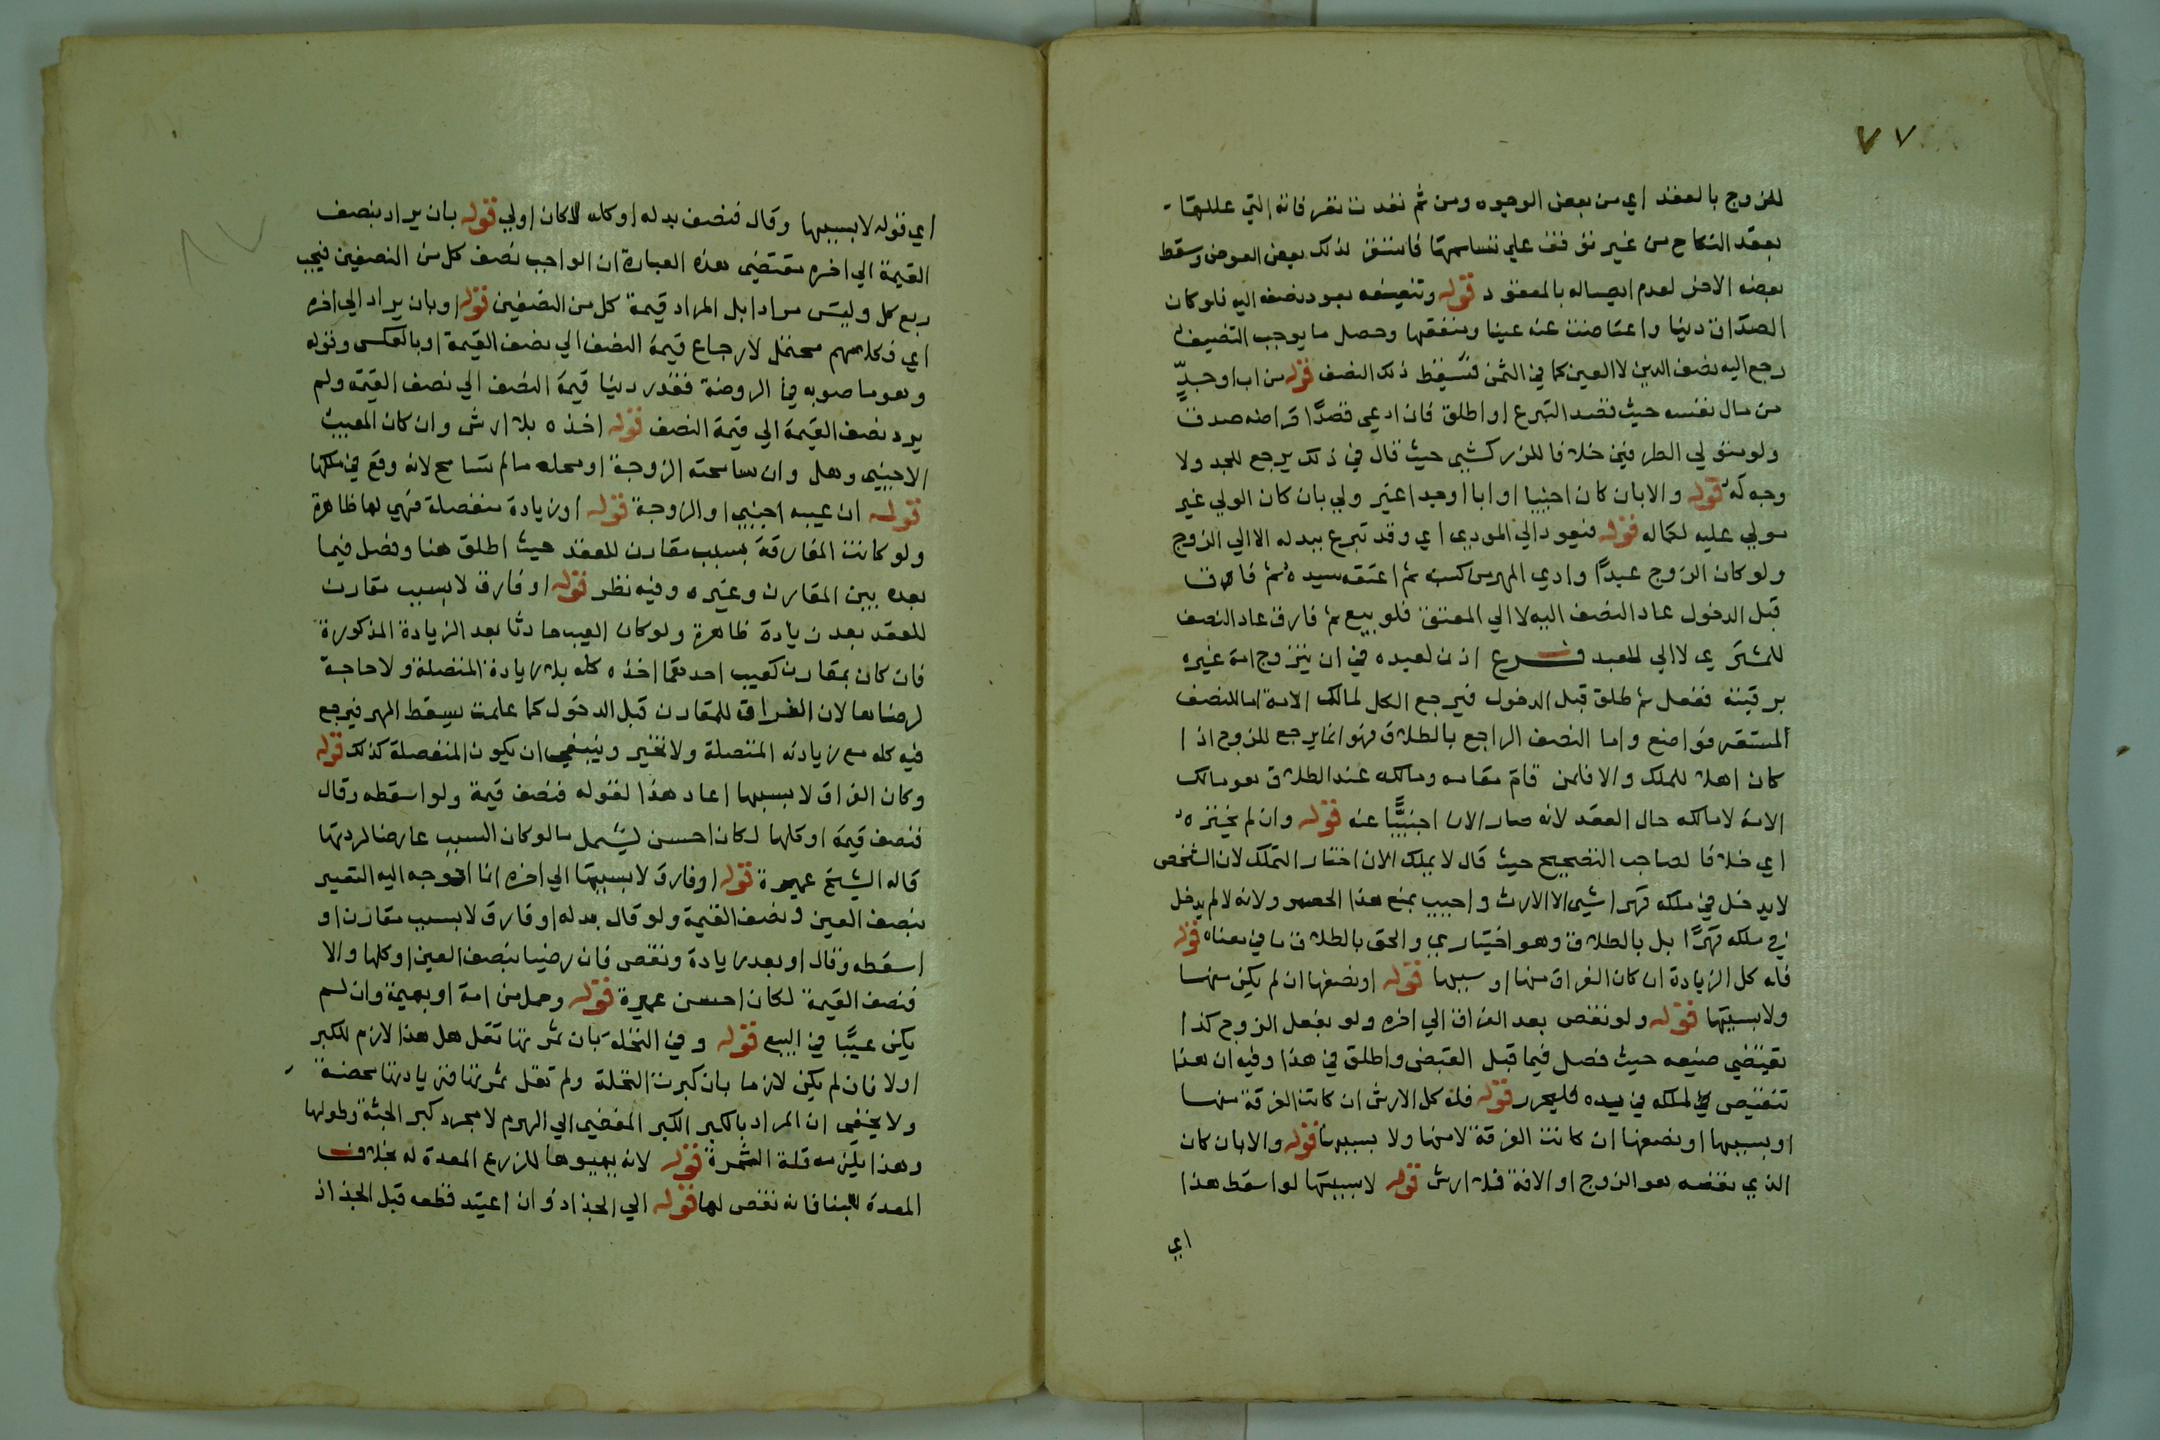 ٧٧
للزوج بالعقد اي من بعض الوجوه ومن ثم نفذت تصرفاته التي عللها
بعقد النكاح من غير توقف علي تقاسمها فاستقر لذلك بعض العوض وسقط
بعضه الاخر لعدم اتصاله بالمعقود قوله وتنصيفه بعود نصفه اليه فلو كان
الصداق دينا واعتاضت عنه عينا ومنفقها وحصل ما يوجب التنصيف
رجع اليه نصف الدين لا العين كما في الثمن فيسقط ذلك النصف قوله من اب او جد
من مال نفسه حيث قصد التبرع او اطلق فان ادعي قصدا قراضه صدق
ولو بتولي الطرفين خلافا للزركشي حيث قال في ذلك يرجع للجد ولا
وجه له قوله والا بان كان اجنبيا او ابا او جدا غير ولي بان كان الولي غير
مولي عليه لكماله قوله فيعود الي المودي اي وقد تبرع ببدله الا الي الزوج
ولو كان الزوج عبدا وادي المهر من كسبه ثم اعتقه سيده ثم فارق
قبل الدخول عاد النصف اليه لا الي المعتق فلو بيع ثم فارق عاد النصف
للمشتري لا الي العبد فرع اذن لعبده في ان يتزوج امة غيره
برقبته ففعل ثم طلق قبل الدخول فيرجع الكل لمالك الامة اما النصف
المستقر فواضح واما النصف الراجع بالطلاق فهو انما يرجع للزوج اذا
كان اهلا للملك والا فلمن قام مقامه ومالكه عند الطلاق هو مالك
الامة لا مالكه حال العقد لانه صار الان اجنبيا عنه قوله وان لم يختره
اي خلافا لصاحب التصحيح حيث قال لا يملك الان اختار التملك لان الشخص
لا يدخل في ملكه قهرا شيئ الا الارث واجيب بمنع هذا الحصر ولانه لا لم يدخل
في ملكه قهرا بل بالطلاق وهو اختياري والحق بالطلاق ما في معناه قوله
فله كل الزيادة ان كان الفراق منها او سببها قوله او نصفها ان لم يكن منها
ولا بسببها قوله ولو نقص بعد الفراق الي اخره ولو بفعل الزوج كذا
يقتضي صنيعه حيث فصل فيما قبل القبض واطلق في هذا وفيه ان هذا
تنقيص لملكه في يده فليحرر قوله فله كل الارش ان كانت الفرقة منها
او بسببها او نصفها ان كانت الفرقة لا منها ولا بسببها قوله والا بان كان
الذي نقصه هو الزوج او الافة فلا ارش قوله لا بسببها لو اسقط هذا
اي
اي قوله لا بسببها وقال فنصف بدله او كله لكان اولي قوله بان يراد بنصف
القيمة الي اخره مقتضي هذه العبارة ان الواجب نصف كل من النصفين فيجب
ربع كل وليس مرادا بل المراد قيمة كل من النصفين قوله او بان يراد الي اخره
اي فكلامهم محتمل لارجاع قيمة النصف الي نصف القيمة او بالعكس وقوله
وهو ما صوبه في الروضة فقدر دينا قيمة النصف الي نصف القيمة ولم
يرد نصف القيمة الي قيمة النصف قوله اخذه بلا ارش وان كان المعيب
الاجنبي وهل وان سامحته الزوجة او محله ما لم تسامح لانه وقع في ملكها
قوله ان عيبه اجنبي او الزوجة قوله او زيادة منفصلة فهي لها ظاهرة
ولو كانت المفارقة بسبب مقارن للعقد حيث اطلق هنا وفصل فيما
بعده بين المقارن وغيره وفيه نظر قوله او فارق لا بسبب مقارن
للعقد بعد زيادة ظاهرة ولو كان العيب حادثا بعد الزيادة المذكورة
فان كان بمقارن كعيب احدهما اخذه كله بلا زيادة المتصلة ولا حاجة
لرضاها لان الفراق للمقارن قبل الدخول كما علمت يسقط المهر فيرجع
فيه كله مع زيادته المتصلة ولا تخير وينبغي ان يكون المنفصلة كذلك قوله
وكان الفراق لا بسببها اعاد هذا لقوله فنصف قيمة ولو اسقطه وقال
فنصف قيمة او كلها لكان احسن ليشمل ما لو كان السبب عارضا لردتها
قاله الشيخ عميرة قوله او فارق لا بسببها الي اخره انما توجه اليه التعبير
بنصف العين ونصف القيمة ولو قال بدله او فارق لا بسبب مقارن او
اسقطه وقال او بعد زيادة ونقص فان رضيا بنصف العين او كلها والا
فنصف القيمة لكان احسن عميرة قوله وحمل من امة او بهيمة وان لم
يكن عيبا في البيع قوله وفي النخلة بان ثمرتها تقل هل هذا لازم للكبر
اولا فان لم يكن لازما بان كبرت النخلة ولم تقل ثمرتها فزيادتها محضة
ولا يخفي ان المراد بالكبر الكبر المفضي الي الهرم لا مجرد كبر الجثة وطولها
وهذا يلزمه قلة الثمرة قوله لانه يهيوها للزرع المعدة له بخلاف
المعدة للبنا فانه نقص لها قوله الي الجذاذ وان اعتيد قطعه قبل الجذاذ